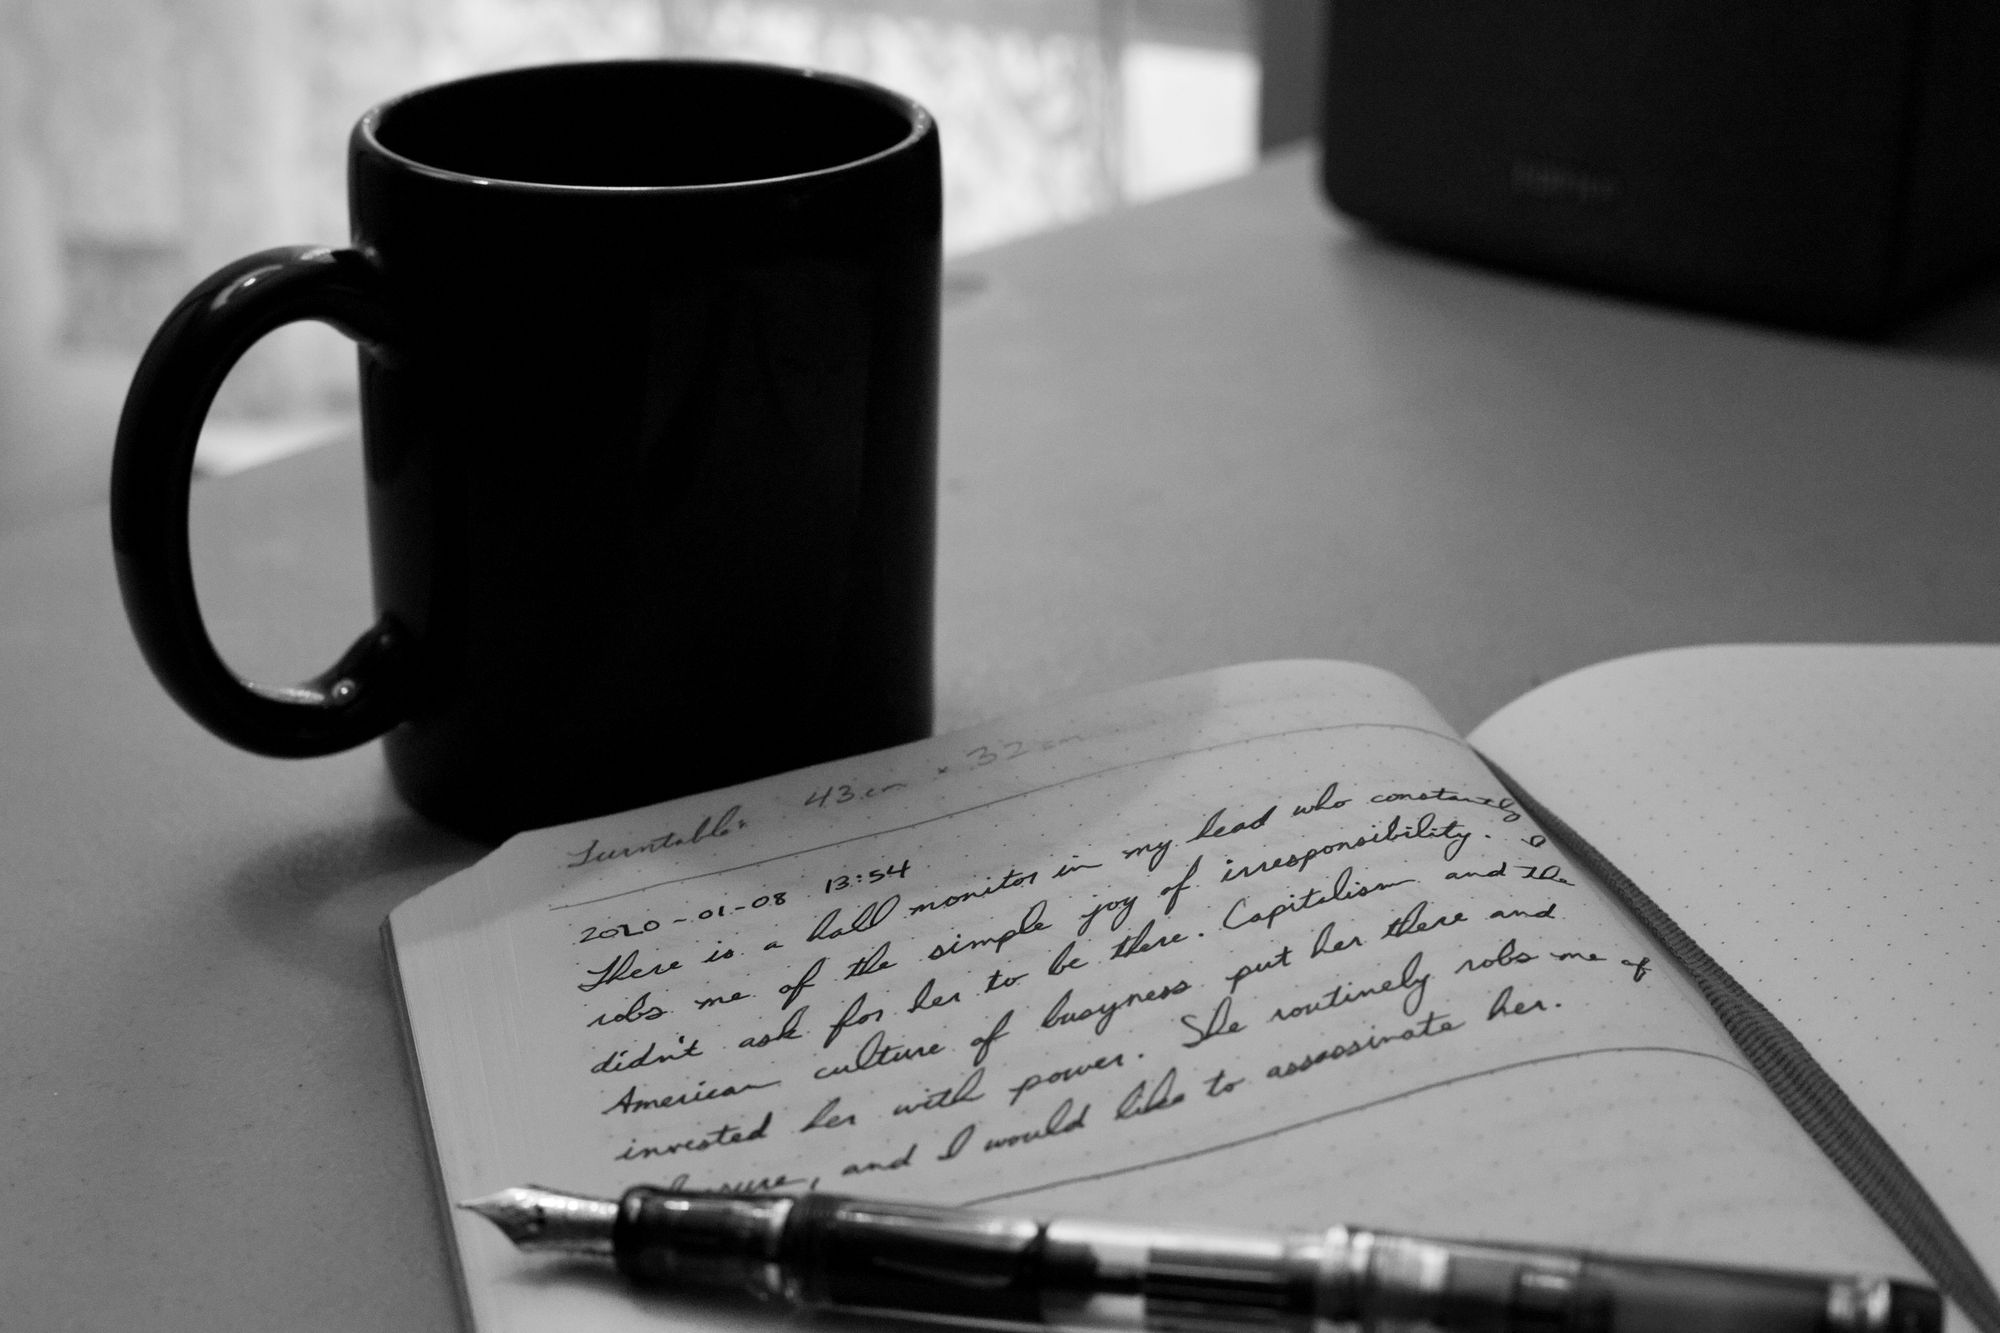 Turntable: 43cm × 32cm
2020-01-08 13:54
There is a hall monitor in my head who constantly
robs me of the simple joy of irresponsibility. I
didn't ask for her to be there. Capitalism and the
American culture of busyness put her there and
invested her with power. She routinely robs me of
, and I would like to assassinate her.